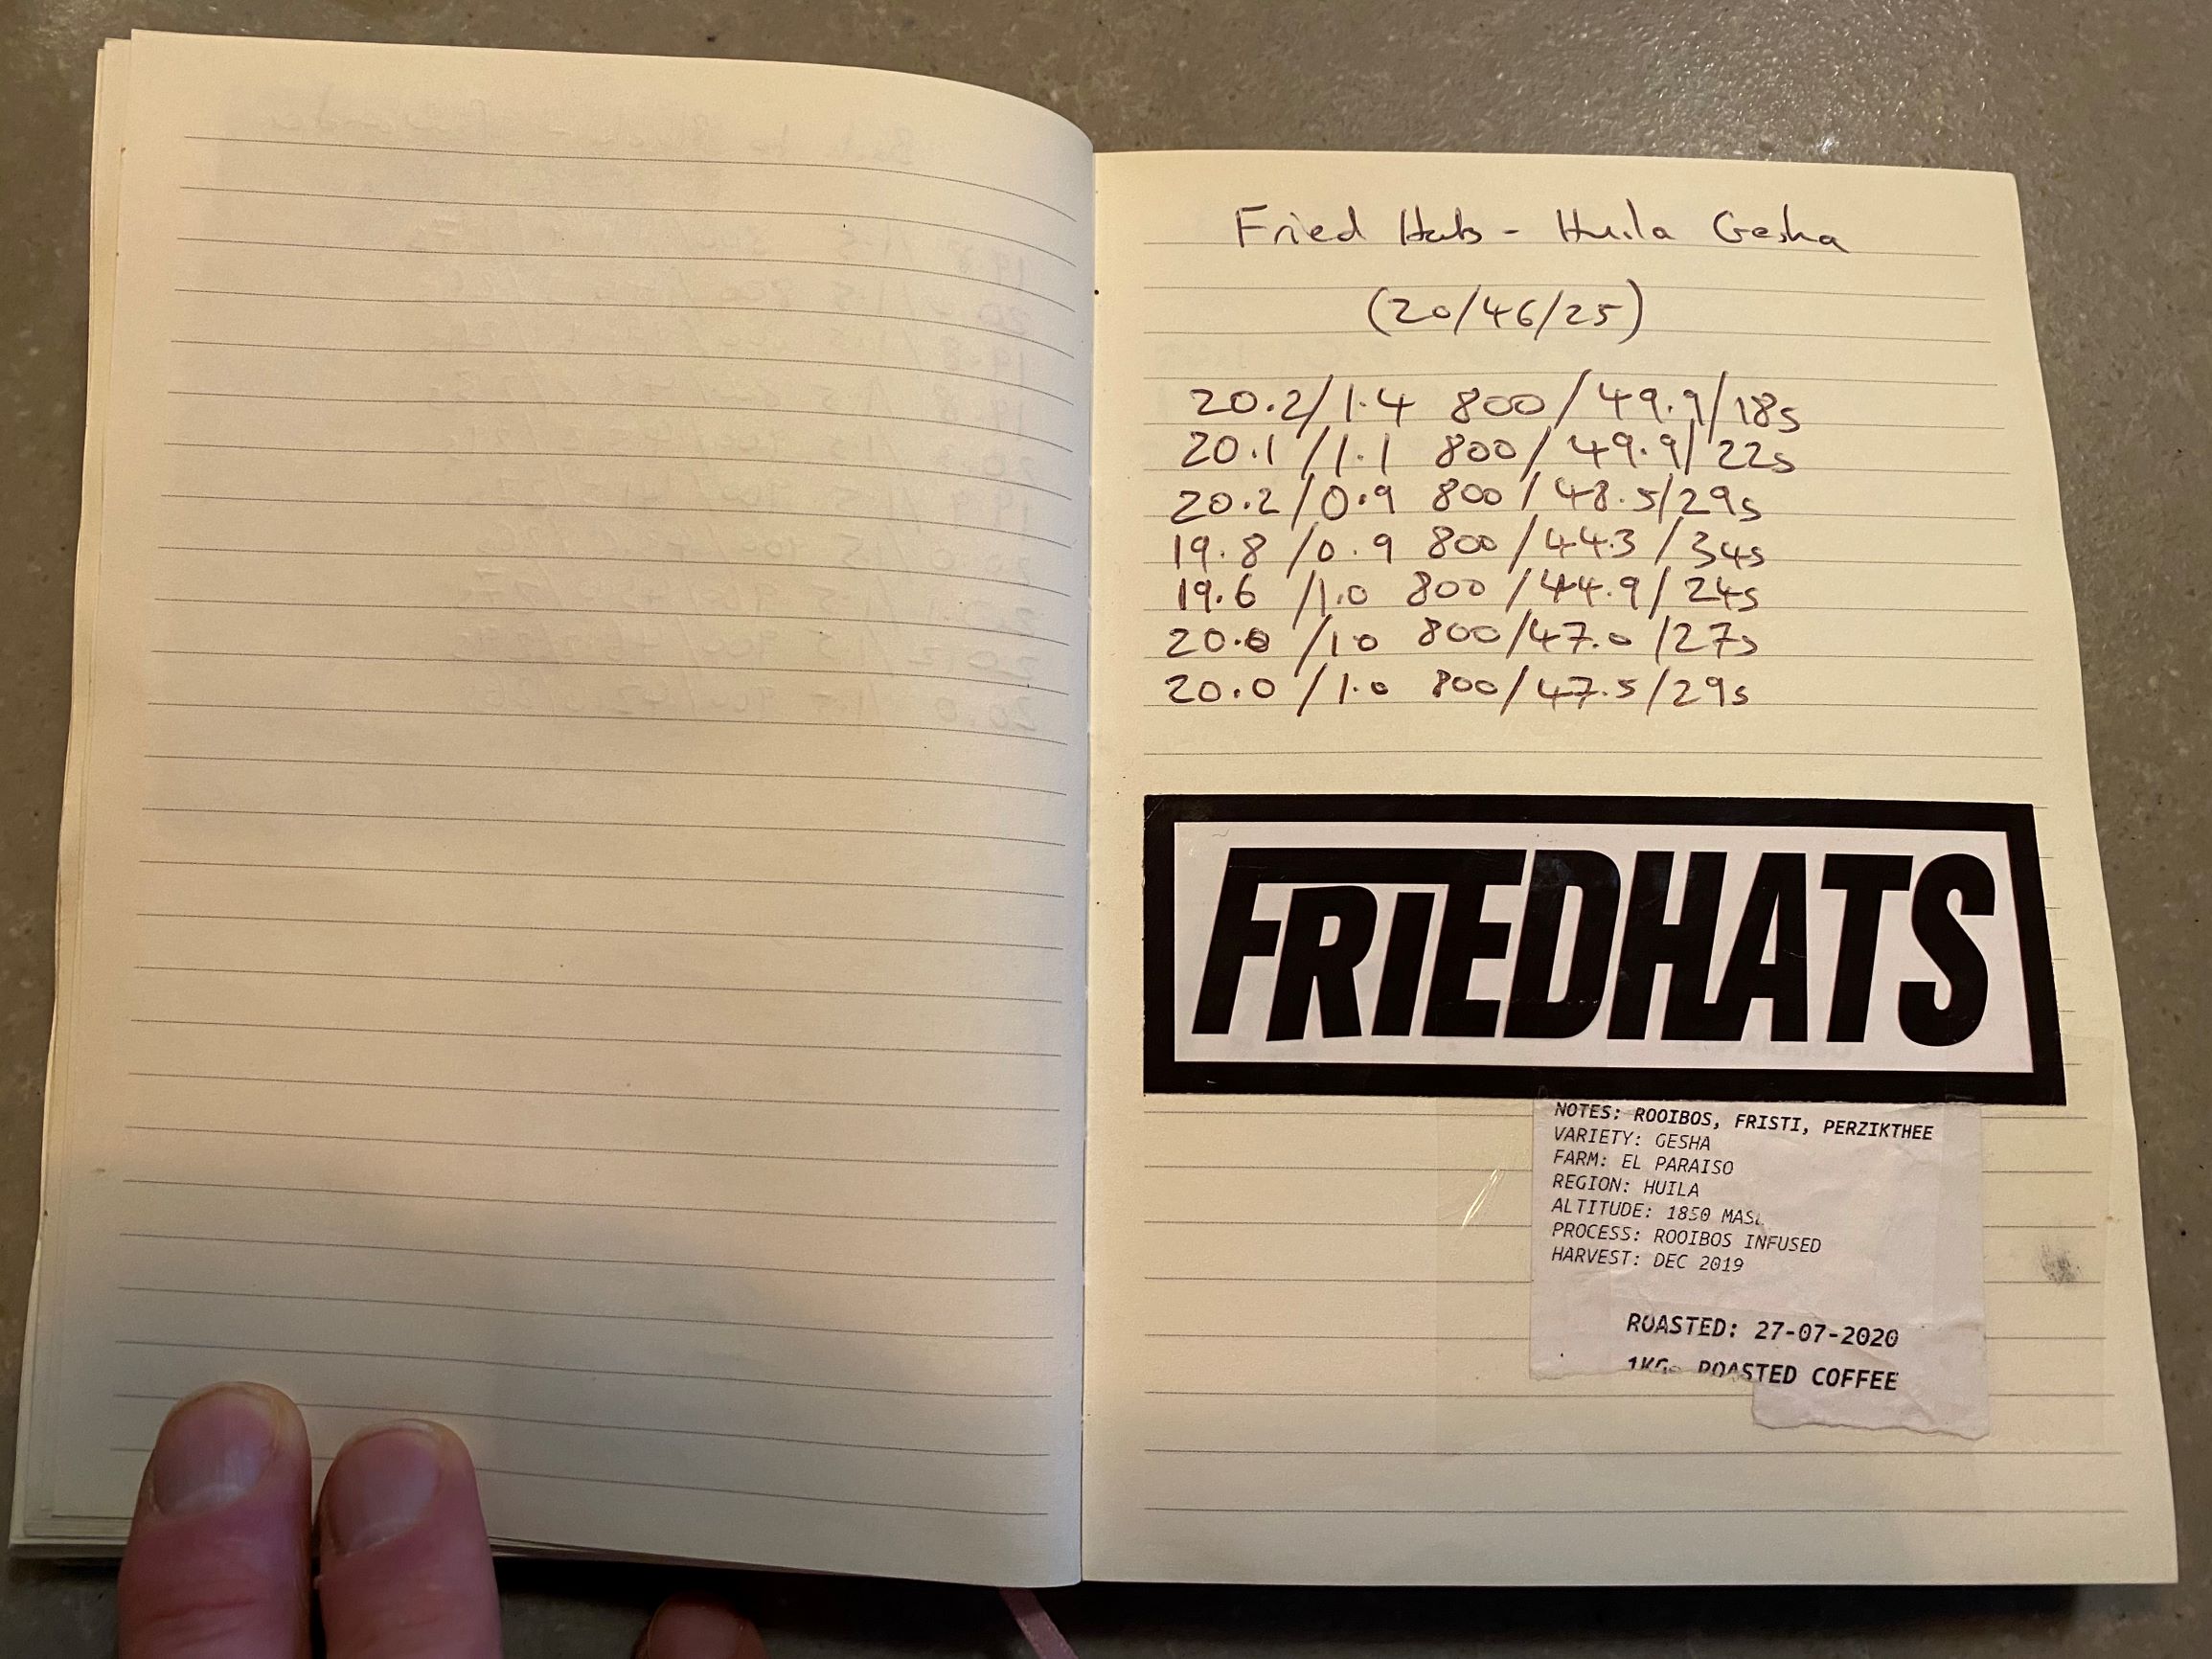 Fried Hats - Huila Gesha
(20/46/25)
20.2/1.4 800/49.9/18s
20.1/1.1 800/49.9/22s
20.2/0.9 800/48.5/29s
19.8/0.9 800/44.3/34s
19.6/1.0 800/44.9/24s
20.0/1.0 800/47.0/27s
20.0/1.0 800/47.5/29s
FRIEDHATS
NOTES: ROOIBOS, FRISTI, PERZIKTHEE
VARIETY: GESHA
FARM: EL PARAISO
REGION: HUILA
ALTITUDE: 1850 MASL
PROCESS: ROOIBOS INFUSED
HARVEST: DEC 2019
ROASTED: 27-07-2020
1KG ROASTED COFFEE